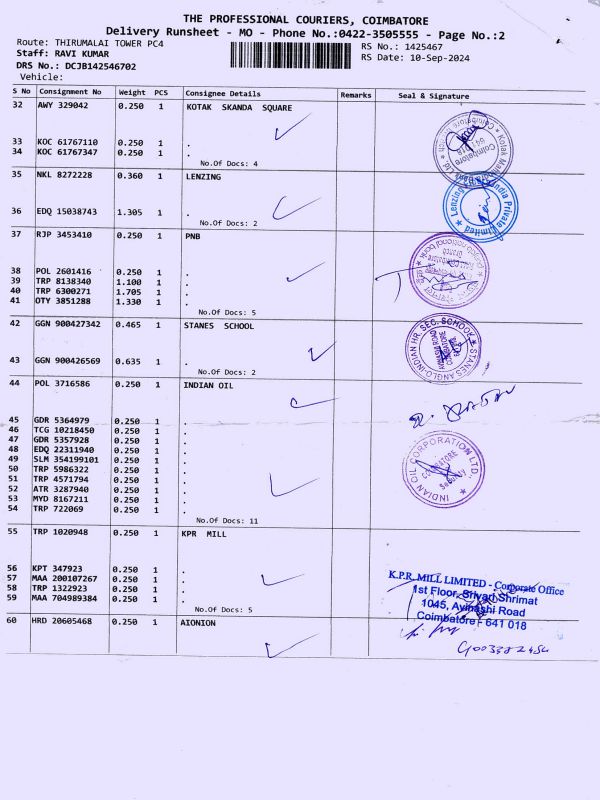 THE PROFESSIONAL COURIERS, COIMBATORE
Delivery Runsheet - MO - Phone No.:0422-3505555 - Page No.:2
Route: THIRUMALAI TOWER PC4
Staff: RAVI KUMAR
RS No.: 1425467
DRS No.: DCJB142546702
RS Date: 10-Sep-2024
Vehicle:
S No Consignment No Weight PCS Consignee Details Remarks Seal & Signature
32 AWY 329042 0.250 1 KOTAK SKANDA SQUARE
33 KOC 61767110 0.250 1 .
34 KOC 61767347 0.250 1 .
No.Of Docs: 4
35 NKL 8272228 0.360 1 LENZING
36 EDQ 15038743 1.305 1 .
No.Of Docs: 2
37 RJP 3453410 0.250 1 PNB
38 POL 2601416 0.250 1 .
39 TRP 8138340 1.100 1 .
40 TRP 6300271 1.705 1 .
41 OTY 3851288 1.330 1 .
No.Of Docs: 5
42 GGN 900427342 0.465 1 STANES SCHOOL
STANES ANGLO-INDIAN HR. SEC. SCHOOL
43 GGN 900426569 0.635 1 .
No.Of Docs: 2
44 POL 3716586 0.250 1 INDIAN OIL
45 GDR 5364979 0.250 1 .
46 TCG 10218450 0.250 1 .
47 GDR 5357928 0.250 1 .
48 EDQ 22311940 0.250 1 .
49 SLM 354199101 0.250 1 .
50 TRP 5986322 0.250 1 .
51 TRP 4571794 0.250 1 .
52 ATR 3287940 0.250 1 .
53 MYD 8167211 0.250 1 .
54 TRP 722069 0.250 1 .
No.Of Docs: 11
INDIAN OIL CORPORATION LTD.
COIMBATORE
Security
55 TRP 1020948 0.250 1 KPR MILL
56 KPT 347923 0.250 1 .
57 MAA 200107267 0.250 1 .
58 TRP 1322923 0.250 1 .
59 MAA 704989384 0.250 1 .
No.Of Docs: 5
K.P.R. MILL LIMITED - Corporate Office
1st Floor, Srivari Shrimat
1045, Avinashi Road
Coimbatore - 641 018
60 HRD 20605468 0.250 1 AIONION